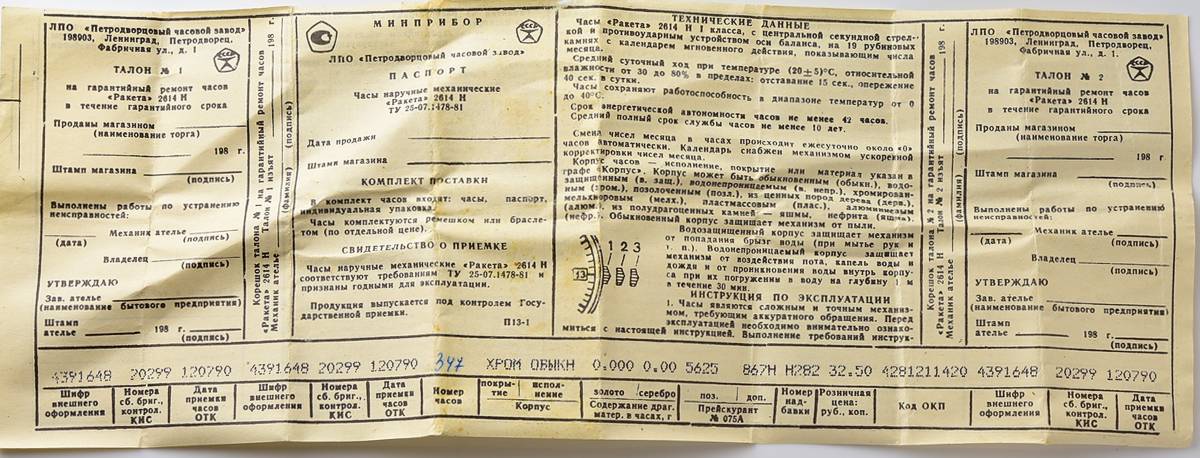 ЛПО «Петродворцовый часовой завод»
198903, Ленинград, Петродворец,
Фабричная ул., д. 1
ТАЛОН № 1
на гарантийный ремонт часов
«Ракета» 2614 Н
в течение гарантийного срока
Проданы магазином
(наименование торга)
198 г.
Штамп магазина
(подпись)
Выполнены работы по устранению
неисправностей:
Механик ателье
(дата) (подпись)
Владелец
(подпись)
УТВЕРЖДАЮ
Зав. ателье
(наименование бытового предприятия)
Штамп
ателье 198 г.
(подпись)
Корешок талона № 1 на гарантийный ремонт часов
«Ракета» 2614 Н Талон № 1 изъят 198 г.
Механик ателье (фамилия) (подпись)
МИНПРИБОР
ЛПО «Петродворцовый часовой завод»
ПАСПОРТ
Часы наручные механические
«Ракета» 2614 Н
ТУ 25-07.1478-81
Дата продажи
Штамп магазина
КОМПЛЕКТ ПОСТАВКИ
В комплект часов входят: часы, паспорт,
индивидуальная упаковка.
Часы комплектуются ремешком или брасле-
том (по отдельной цене).
СВИДЕТЕЛЬСТВО О ПРИЕМКЕ
Часы наручные механические «Ракета» 2614 Н
соответствуют требованиям ТУ 25-07.1478-81 и
признаны годными для эксплуатации.
Продукция выпускается под контролем Госу-
дарственной приемки.
П13-1
ТЕХНИЧЕСКИЕ ДАННЫЕ
Часы «Ракета» 2614 Н I класса, с центральной секундной стрел-
кой и противоударным устройством оси баланса, на 19 рубиновых
камнях с календарем мгновенного действия, показывающим числа
месяца.
Средний суточный ход при температуре (20±5)°С, относительной
влажности от 30 до 80% в пределах: отставание 15 сек., опережение
40 сек. в сутки.
Часы сохраняют работоспособность в диапазоне температур от 0
до 40°С.
Срок энергетической автономности часов не менее 42 часов.
Средний полный срок службы часов не менее 10 лет.
Смена чисел месяца в часах происходит ежесуточно около «0»
часов автоматически. Календарь снабжен механизмом ускоренной
корректировки чисел месяца.
Корпус часов — исполнение, покрытие или материал указан в
графе «Корпус». Корпус может быть обыкновенным (обыкн.), водо-
защищенным (в. защ.), водонепроницаемым (в. непр.), хромирован-
ным (хром.), позолоченным (позл.), из ценных пород дерева (дерв.),
мельхиоровым (мелх.), пластмассовым (плас.), алюминиевым
(алюм.), из полудрагоценных камней — яшмы, нефрита (яшма),
(нефр.). Обыкновенный корпус защищает механизм от пыли.
Водозащищенный корпус защищает механизм
от попадания брызг воды (при мытье рук и
т. п.). Водонепроницаемый корпус защищает
механизм от воздействия пота, капель воды и
дождя и от проникновения воды внутрь корпу-
са при их погружении в воду на глубину 1 м
в течение 30 мин.
1 2 3
13
ИНСТРУКЦИЯ ПО ЭКСПЛУАТАЦИИ
1. Часы являются сложным и точным механиз-
мом, требующим аккуратного обращения. Перед
эксплуатацией необходимо внимательно ознако-
миться с настоящей инструкцией. Выполнение требований инструк-
Корешок талона № 2 на гарантийный ремонт часов
«Ракета» 2614 Н Талон № 2 изъят 198 г.
Механик ателье (фамилия) (подпись)
ЛПО «Петродворцовый часовой завод»
198903, Ленинград, Петродворец,
Фабричная ул., д. 1.
ТАЛОН № 2
на гарантийный ремонт часов
«Ракета» 2614 Н
в течение гарантийного срока
Проданы магазином
(наименование торга)
198 г.
Штамп магазина
(подпись)
Выполнены работы по устранению
неисправностей:
Механик ателье
(дата) (подпись)
Владелец
(подпись)
УТВЕРЖДАЮ
Зав. ателье
(наименование бытового предприятия)
Штамп
ателье 198 г.
(подпись)
4391648 20299 120790 4391648 20299 120790 347 ХРОМ ОБЫКН 0.000 0.00 5625 867Н Н282 32.50 4281211420 4391648 20299 120790
Шифр внешнего оформления
Номера сб. бриг., контрол. КИС
Дата приемки часов ОТК
Шифр внешнего оформления
Номера сб. бриг., контрол. КИС
Дата приемки часов ОТК
Номер часов
покры-тие испол-нение
Корпус
золото серебро
Содержание драг. матер. в часах, г
поз. доп.
Прейскурант № 075А
Номер над-бавки
Розничная цена: руб., коп.
Код ОКП
Шифр внешнего оформления
Номера сб. бриг., контрол. КИС
Дата приемки часов ОТК